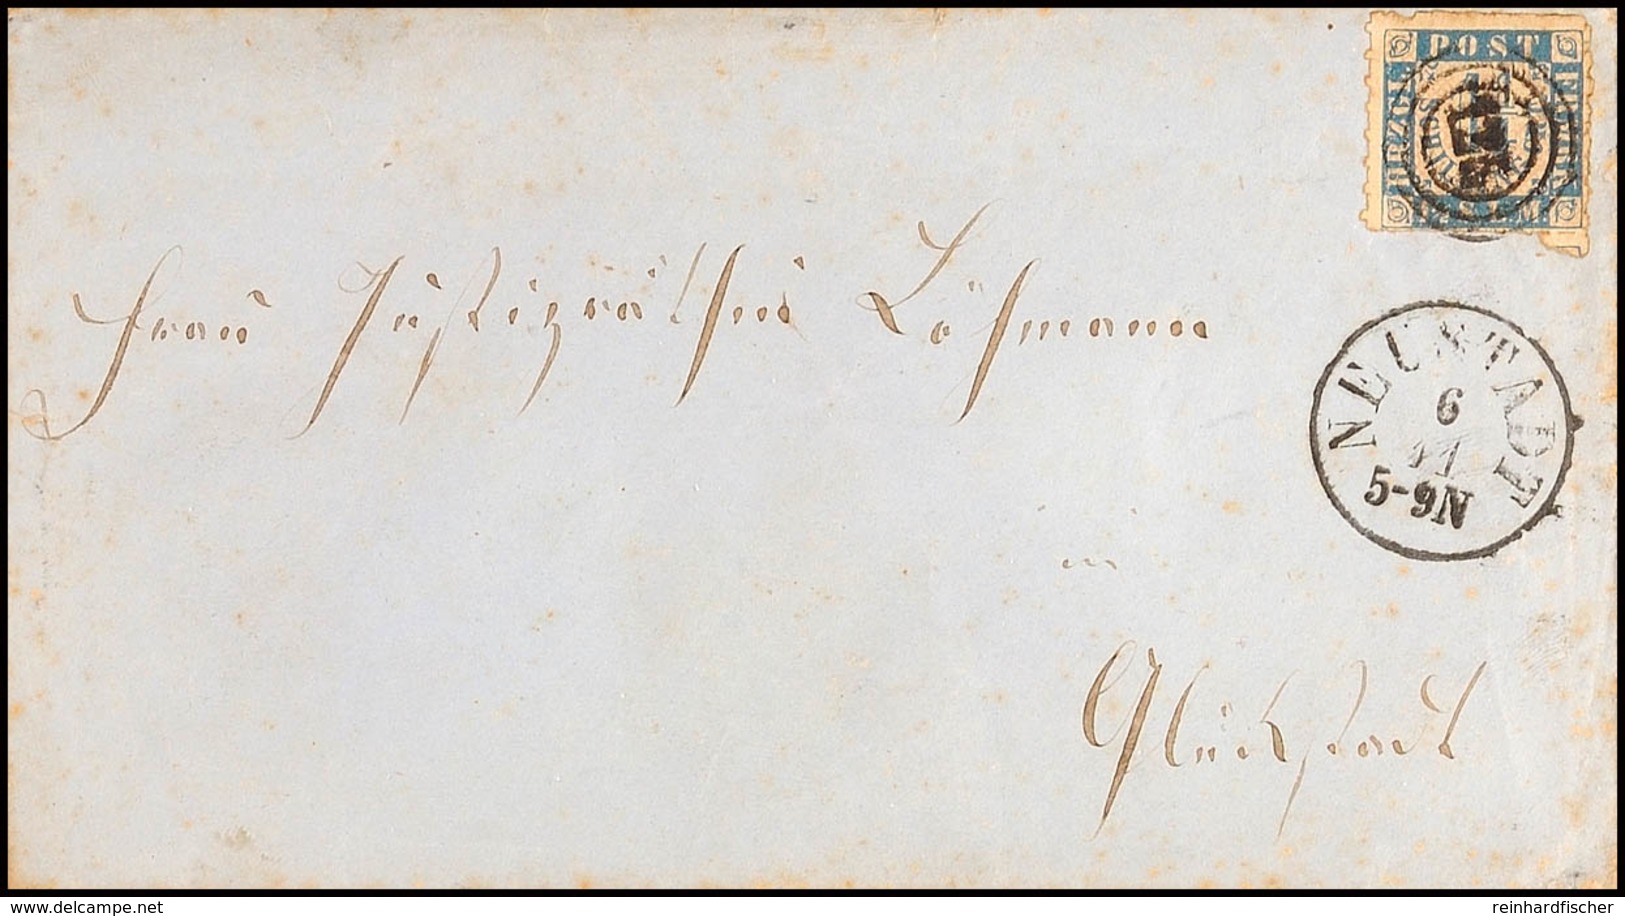 POST
HRZGL
1¼ S.L.M.
Frau Justizräthin Lösmann
NEUSTADT
6
11
5-9N
in
Glückstadt
www.delcampe.net
reinhardfischer